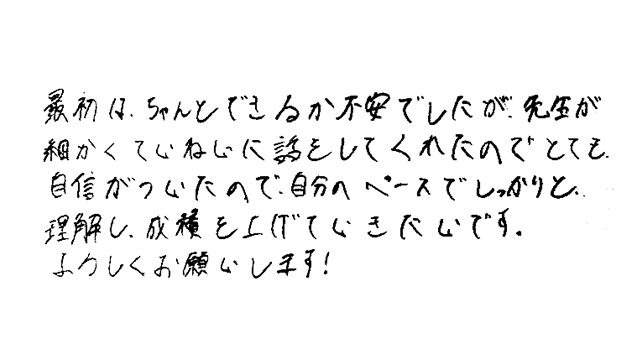 最初は、ちゃんとできるか不安でしたが、先生が
細かくていねいに話をしてくれたのでとても、
自信がついたので、自分のペースでしっかりと、
理解し、成積を上げていきたいです。
よろしくお願いします!